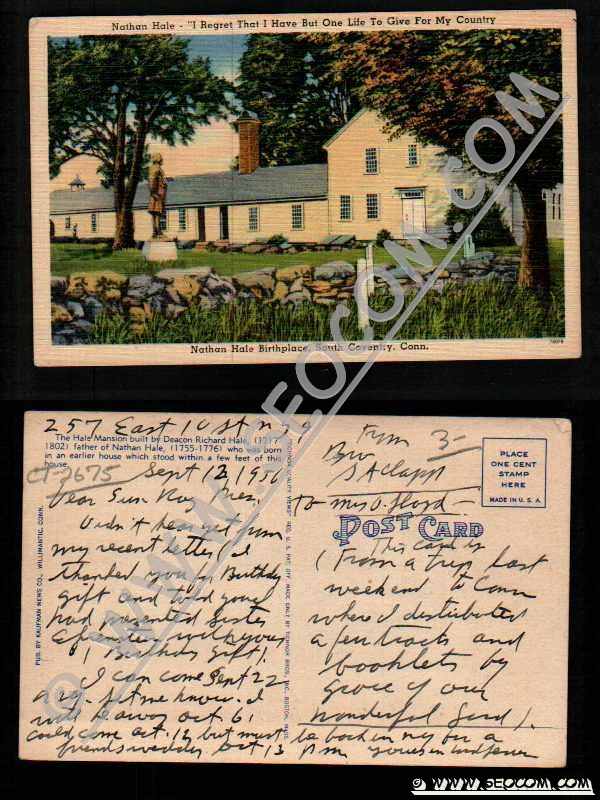 Nathan Hale - "I Regret That I Have But One Life To Give For My Country
Nathan Hale Birthplace, South Coventry, Conn.
© WWW.SEOCOM.COM
257 East 10 St
The Hale Mansion built by Deacon Richard Hale, (1717-
1802) father of Nathan Hale, (1755-1776) who was born
in an earlier house which stood within a few feet of this
house.
CT-7675
Sept 12, 1956
Dear
Didn't hear yet from
my recent letter (I
thanked you for Birthday
gift and told you I
had presented Sister
with yours
Birthday gift).
I can come Sept 22
let me know. I
will be away Oct. 6
could come Oct. 12 but must be back in for a
friends wedding Oct 13
PUB. BY KAUFMAN NEWS CO., WILLIMANTIC, CONN.
"TICHNOR QUALITY VIEWS" REG. U. S. PAT. OFF. MADE ONLY BY TICHNOR BROS., INC., BOSTON, MASS.
From
3-
to Mrs
PLACE
ONE CENT
STAMP
HERE
MADE IN U. S. A.
POST CARD
This card is
(From a trip last
weekend to Conn
where I distributed
a few tracts and
booklets by
grace of our
wonderful Lord).
P.M. yours in
© WWW.SEOCOM.COM